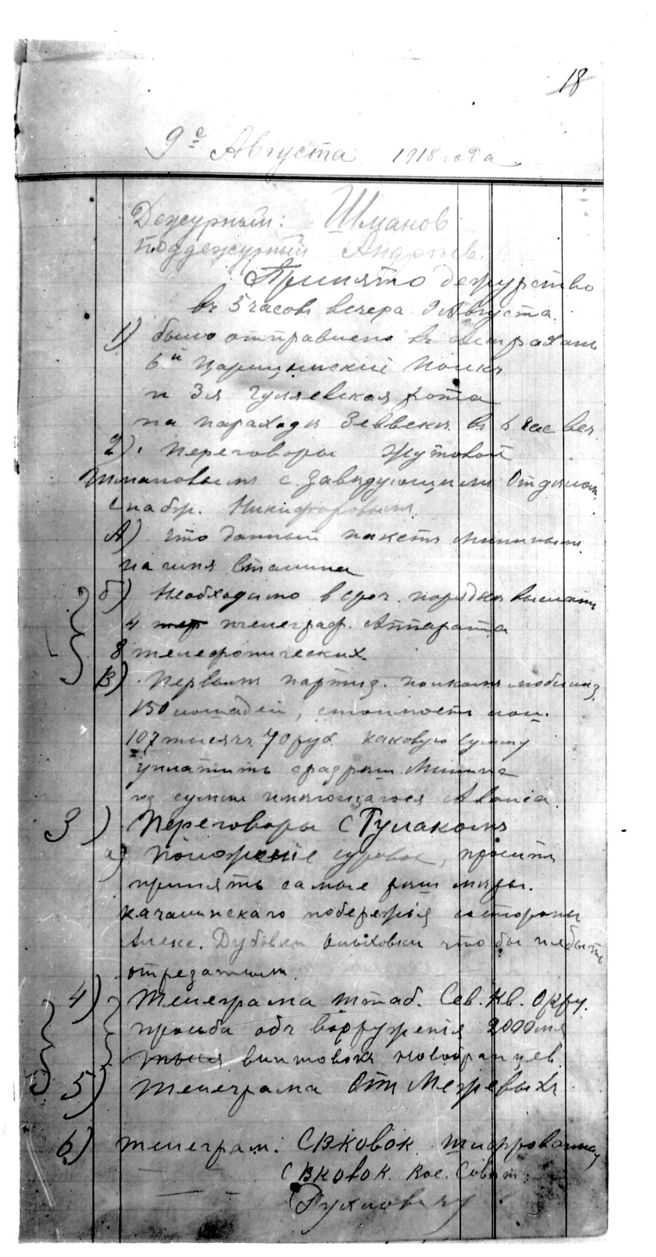 18
9е Августа 1918 года
Дежурный: Шманов
поддежурный Андреев.
Принято дежурство
въ 5 часовъ вечера 9 Августа.
1) было отправлено въ
6й Царицынский Полкъ
и 3я Гуляевская рота
на пароходъ въ 6 час веч
2). Переговоры Жутовой
Шмановымъ с Завѣдующимъ Отдѣлом
снабж. Никифоровымъ.
А) что данный пакетъ Мининымъ
на имя Сталина
б) Необходимо в сроч. порядкѣ выслать
4 телеграф. Аппарата
8 телефонических
В) Первымъ партиз. полкомъ мобилиз.
150 лошадей, стоимость лош.
107 тысячъ 70 руб каковую сумму
уплатить Минина
из суммы имѣющагося Аванса.
3) Переговоры с Тулакомъ
а) Положение, просить
принять самые мѣры.
качалинскаго побережья со стороны
Алекс. Дубовки что бы не быть
отрезанным.
4) Телеграма штаб. Сев. Кв. Окру.
просьба объ воружения 2000 мя
винтовокъ новобранцев
5) Телеграма От Межевыхъ
6) телеграм. СВКОВОК шифрованная
— — СВКОВОК. Вое. Совѣт.
Рухимович